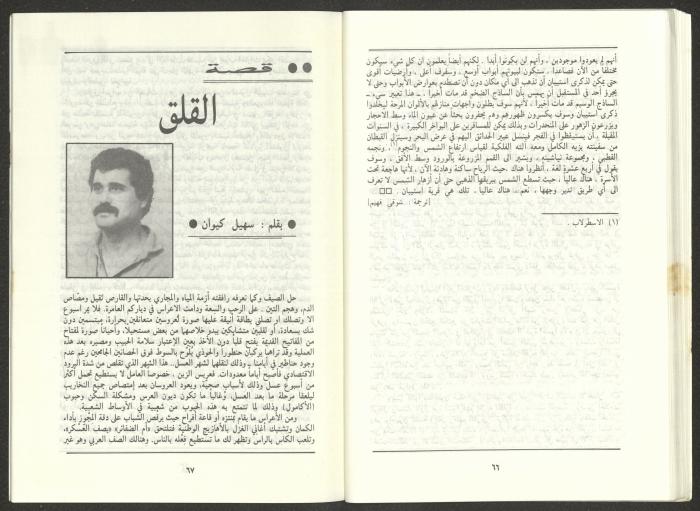 أنهم لم يعودوا موجودين ، وأنهم لن يكونوا أبدا . لكنهم أيضاً يعلمون ان كل شيء سيكون
مختلفا من الآن فصاعدا ، ستكون لبيوتهم أبواب أوسع ، وسقوف أعلى ، وأرضيات أقوى
حتى يمكن لذكرى استيبان أن تذهب الى أي مكان دون أن تصطدم بعوارض الأبواب وحتى لا
يجرؤ احد في المستقبل أن يهمس بأن الساذج الضخم قد مات أخيرا . هذا تعبير سيء ـ
الساذج الوسيم قد مات أخيرا ، لأنهم سوف يطلون واجهات منازلهم بالألوان المرحة ليخلدوا
ذكرى استيبان وسوف يكسرون ظهورهم وهم يحفرون بحثا عن عيون الماء وسط الاحجار
ويزرعون الزهور على المنحدرات وبذلك يمكن للمسافرين على البواخر الكبيرة ، في السنوات
المقبلة ، أن يستيقظوا في الفجر فينسل عبير الحدائق اليهم في عرض البحر وسينزل القبطان
من سفينته بزيه الكامل ومعه آلته الفلكية لقياس ارتفاع الشمس والنجوم(١)، ونجمه
القطبي ، ومجموعة نياشينه ، ويشير الى القمم المزروعة بالورود وسط الأفق ، وسوف
يقول في أربع عشرة لغة . أنظروا هناك ،حيث الرياح ساكنة وهادئة الآن ، لأنها هاجعة تحت
الأسرة ، هناك عاليا ، حيث تسطع الشمس ببريقها الذهبي حتى أن أزهار الشمس لا تعرف
الى أي طريق تدير وجهها ، نعم ، هناك عاليا ، تلك هي قرية استيبان .
[ترجمة : شوقي فهيم]
(١) الاسطرلاب .
٦٦
قصة
القلق
بقلم : سهيل كيوان
حل الصيف وكما نعرفه رافقته أزمة المياه والمجاري بحدتها والقارص ثقيل ومصّاص
الدم، وهجم التين . على الرحب والسعة ودامت الاعراس في دياركم العامرة. فلا يمر اسبوع
الا وتصلك او تصلني بطاقة أنيقة عليها صورة لعروسين متعانقين بحرارة، مبتسمين دون
شك بسعادة، او لقلبين متشابكين يبدو خلاصهما من بعض مستحيلا، وأحيانا صورة لمفتاح
من المفاتيح القديمة يفتح قلباً دون الأخذ بعين الإعتبار سلامة الحبيب ومصيره بعد هذه
العملية وقد تراهما يركبان حنطورا والحوذي يلوّح بالسوط فوق الحصانين الجامحين رغم عدم
وجود حناطير في أيامنا .. وذلك لنقلهما لشهر العسل.. هذا الشهر الذي تقلص من شدة البرود
الاقتصادي فأصبح أياماً معدودات. فعريس الزين ، خصوصا العامل لا يستطيع تحمل أكثر
من أسبوع عسل وذلك لأسباب صحية، ويعود العروسان بعد إمتصاص جميع التخاريب
ليلعقا مرحلة ما بعد العسل، وغالبا ما تكون ديون العرس ومشكلة السكن وحبوب
(الأكامول) وذلك لما تتمتع به هذه الحبوب من شعبية في الأوساط الشعبية.
ومن الأعراس ما يقام بمنتزه أو قاعة أفراح حيث يرقص الشباب على دقة المجوز بأداء،
الكمان وتشتبك أغاني الغزل بالأهازيج الوطنية فتلتحق «أم الضفائر» «بصف العسكر»،
وتلعب الكاس بالراس وتظهر لك ما تستطيع فعله بالناس. وهنالك الصف العربي وهو غير
٦٧